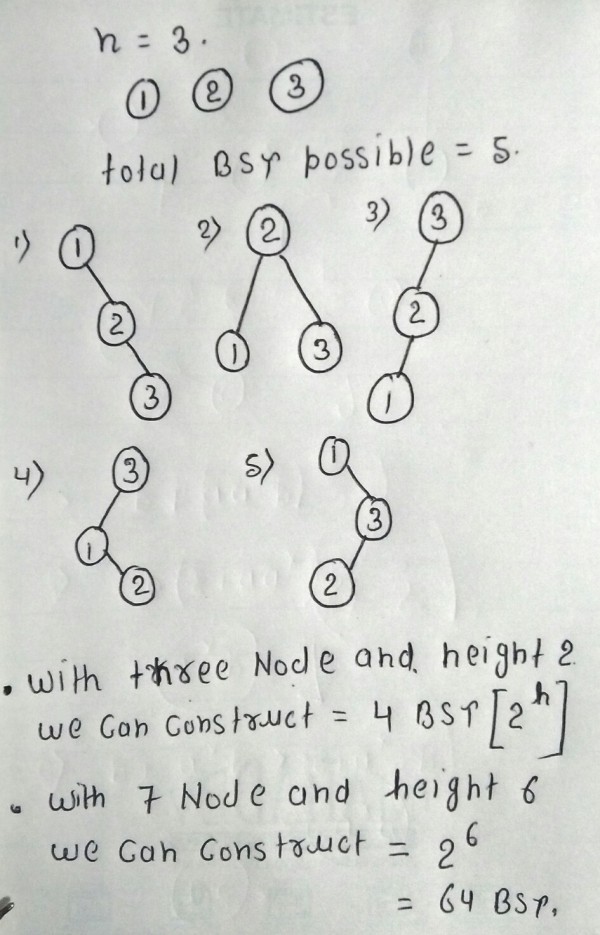 n = 3.
1 2 3
total BST possible = 5.
1) 1 2 3
2) 2 1 3
3) 3 2 1
4) 3 1 2
5) 1 3 2
. with three Node and height 2
we can construct = 4 BST [2^h]
. with 7 Node and height 6
we can construct = 2^6
= 64 BST.